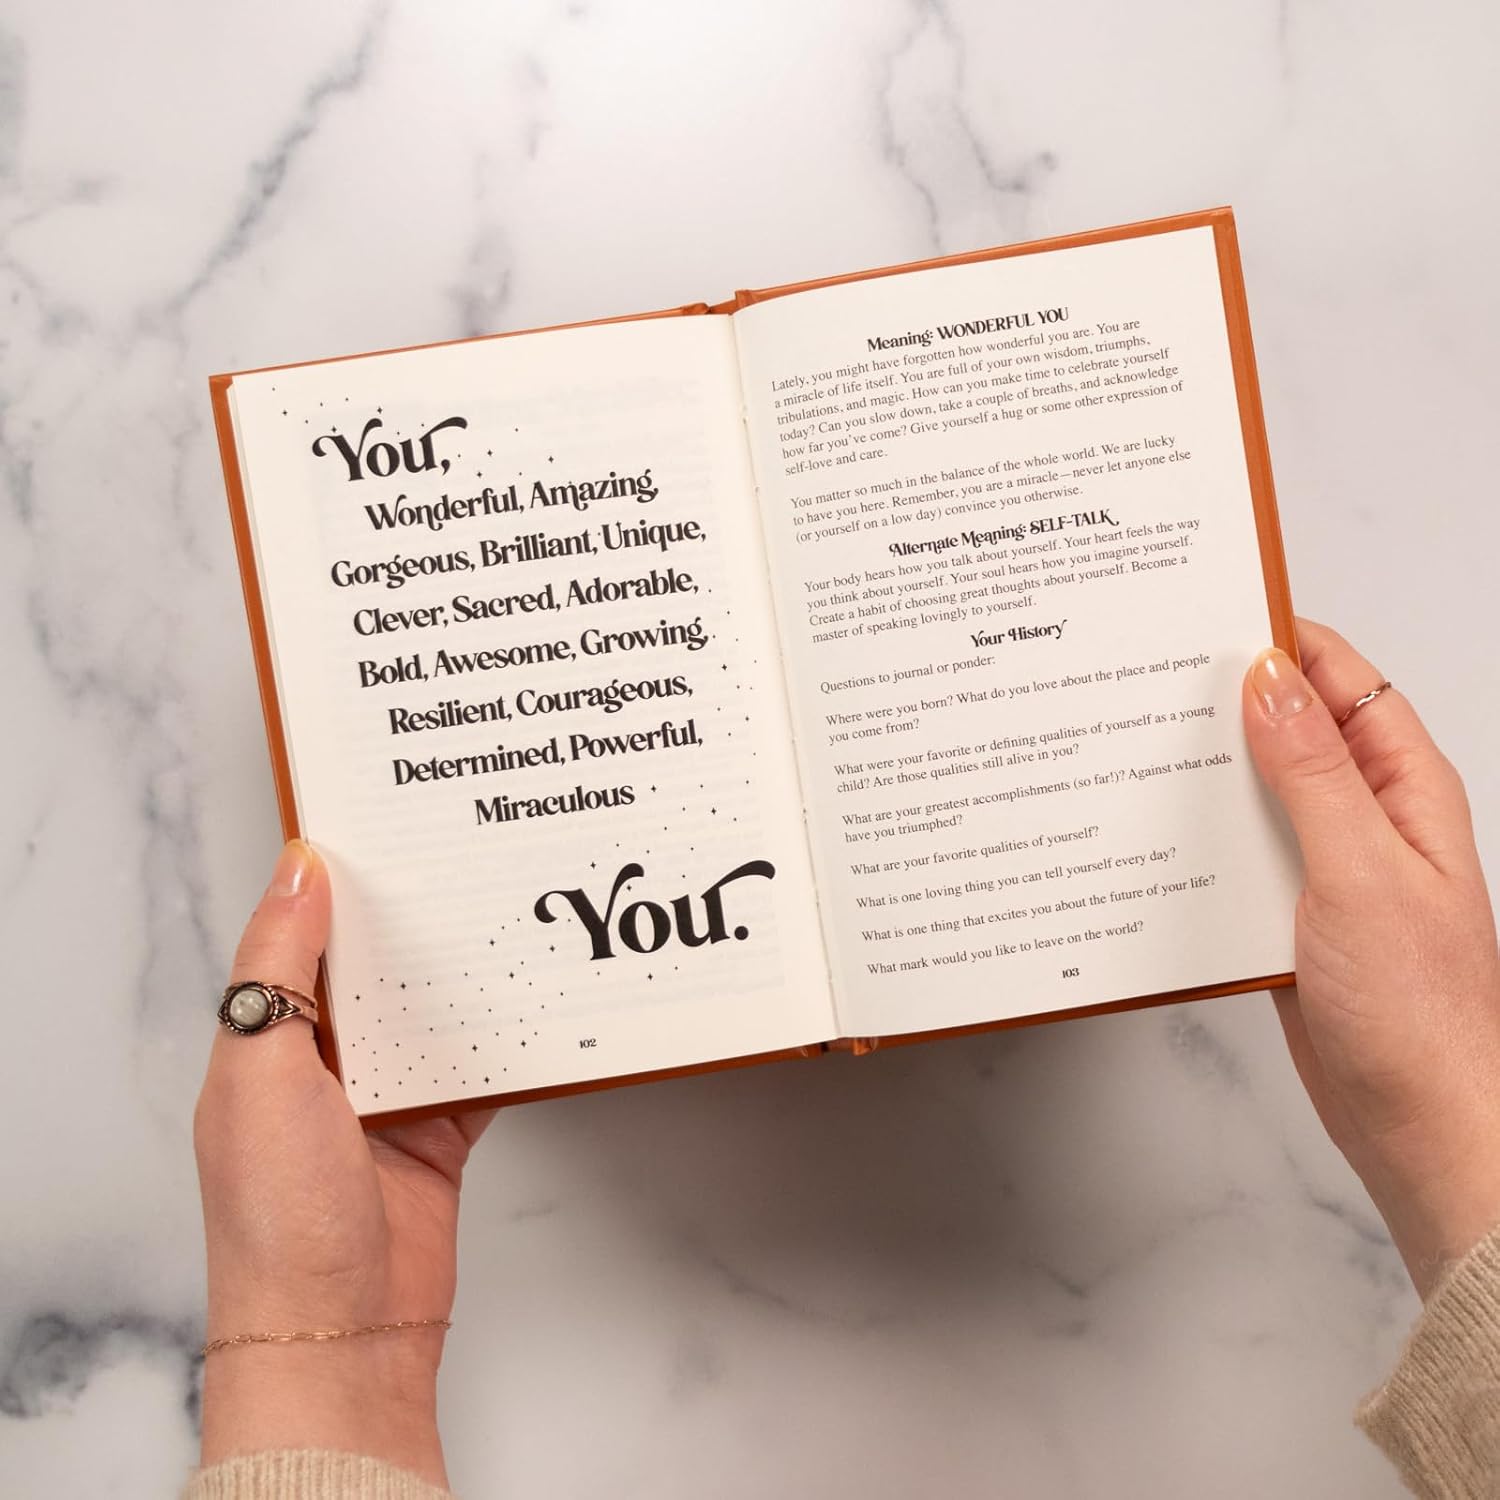 You,
Wonderful, Amazing,
Gorgeous, Brilliant, Unique,
Clever, Sacred, Adorable,
Bold, Awesome, Growing,
Resilient, Courageous,
Determined, Powerful,
Miraculous
You.
102
Meaning: WONDERFUL YOU
Lately, you might have forgotten how wonderful you are. You are
a miracle of life itself. You are full of your own wisdom, triumphs,
tribulations, and magic. How can you make time to celebrate yourself
today? Can you slow down, take a couple of breaths, and acknowledge
how far you've come? Give yourself a hug or some other expression of
self-love and care.
You matter so much in the balance of the whole world. We are lucky
to have you here. Remember, you are a miracle—never let anyone else
(or yourself on a low day) convince you otherwise.
Alternate Meaning: SELF-TALK
Your body hears how you talk about yourself. Your heart feels the way
you think about yourself. Your soul hears how you imagine yourself.
Create a habit of choosing great thoughts about yourself. Become a
master of speaking lovingly to yourself.
Your History
Questions to journal or ponder:
Where were you born? What do you love about the place and people
you come from?
What were your favorite or defining qualities of yourself as a young
child? Are those qualities still alive in you?
What are your greatest accomplishments (so far!)? Against what odds
have you triumphed?
What are your favorite qualities of yourself?
What is one loving thing you can tell yourself every day?
What is one thing that excites you about the future of your life?
What mark would you like to leave on the world?
103